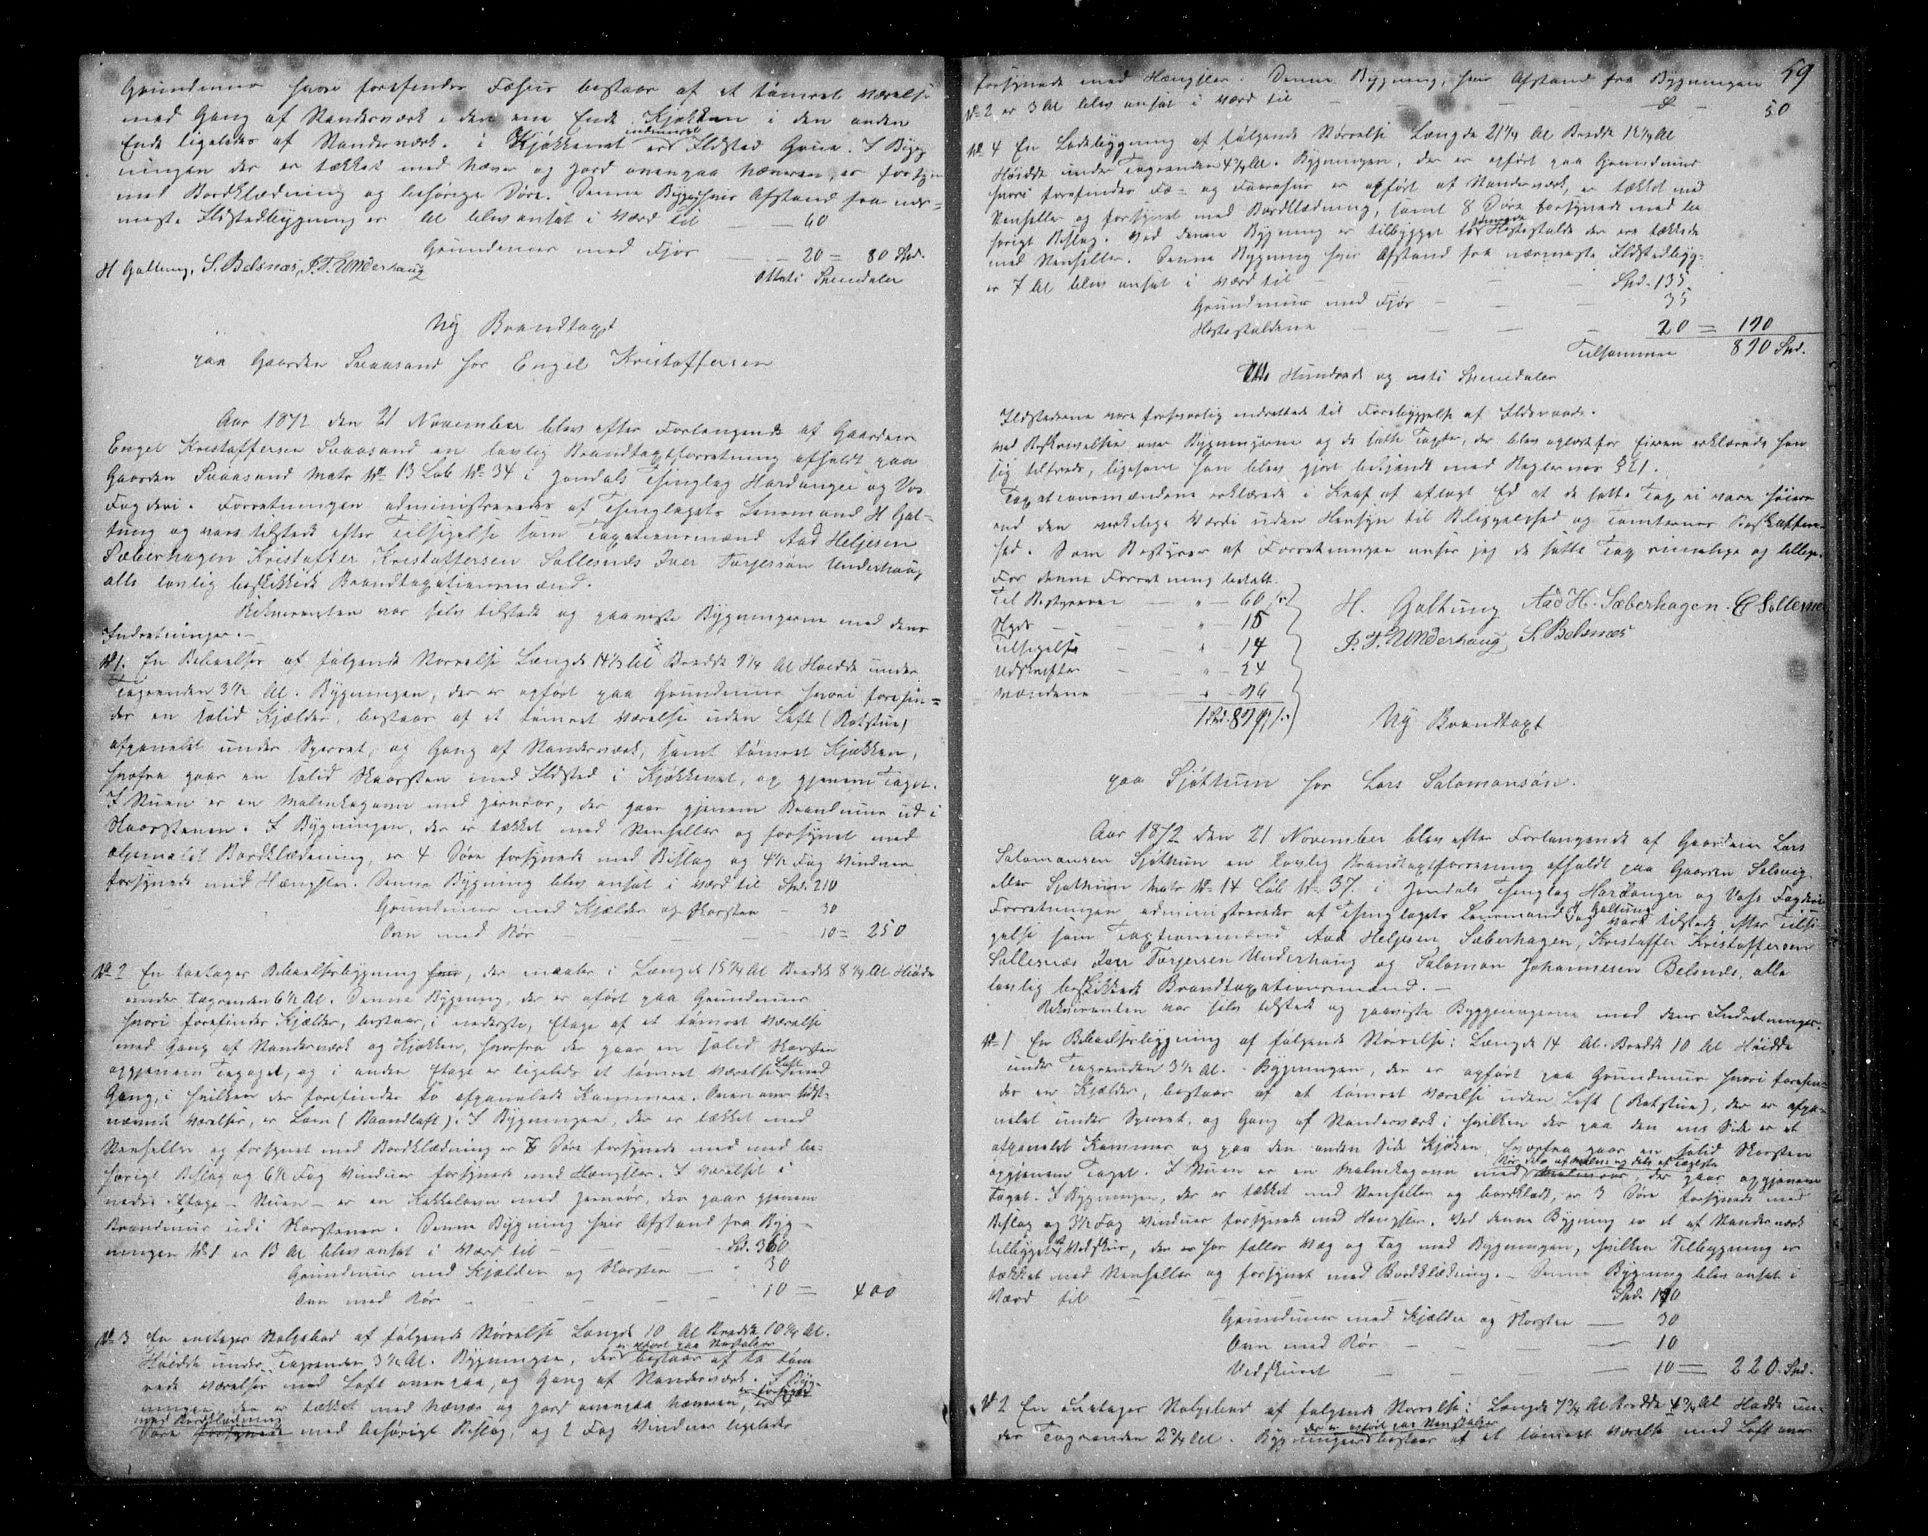 Grundmuur hvori forefindes Fæhuus bestaar af et tømret Værelse
med Gang af Standerværk i den ene Ende Kjøkken i den anden
Ende ligeledes af Standerværk. i Kjøkkenet er indmuret Ildsted Grue. I Byg-
ningen der er tækket med Næver og Jord ovenpaa Næveren, er forsyn
med Bordklædning og behørige Døre. Denne Bygn. hvis Afstand fra nær-
meste Ildstedbygning er Al blev ansat i Værd til — — 60
Grundmuur med Fjøs — — 20 = 80 Spd.
H Galtung, S. Belsnæs, J. T. Underhaug
Otteti Speciedaler
Ny Brandtaxt
paa Gaarden Svaasand hos Engel Kristoffersen
Aar 1872 den 21 November blev efter Forlangende af Gaardm
Engel Kristoffersen Svaasand en lovlig Brandtaxtforretning afholdt paa
Gaarden Svaasand Matr No 13 Løb No 34 i Jondals Thinglag Hardanger og Vos
Fogderi. Forretningen administreredes af Thinglagets Lensmand H Gal-
tung og vare tilstede efter Tilsigelse som Taxationsmænd Aad Heljesen
Sæberhagen Kristoffer Kristoffersen Sollesnæs Iver Torjersen Underhaug,
alle lovlig beskikkede Brandtaxationsmænd.
Rekvirenten var selv tilstede og paaviste Bygningerne med deres
Indretninger. —
No 1. En Beboelses af følgende Størrelse Længde 14½ Al Bredde 9¼ Al Høide under
Tagrenden 3½ Al. Bygningen, der er opført paa Grundmuur hvori forefin-
des en solid Kjælder, bestaar af et tømret Værelse uden Loft (Røgstue)
afpanelet under Sperret, og Gang af Standerværk, samt tømret Kjøkken,
hvofra gaar en solid Skorsten med Ildsted i Kjøkkenet, op gjenem Taget.
I Stuen er en Malmkagovn med Jernrør, der gaar gjenem Brandmuur ud i
Skorstenen. I Bygningen, der er tækket med Stenheller og forsynet med
oljemalet Bordklædning, er 4 Døre forsynede med Beslag og 4½ Fag Vinduer
forsynede med Hængsler. Denne Bygning blev ansat i Værd til Spd. 210
Grundmuur med Kjælder og Skorsten — 30
Ovn med Rør — — — 10 = 250
No 2 En toetages Beboelsesbygning, der maaler i Længde 15¼ Al Bredde 8¼ Al Høide
under Tagrenden 6½ Al. Denne Bygning, der er opført paa Grundmuur
hvori forefindes Kjælder, bestaar, i nederste, Etage af et tømret Værelse
med Gang af Standerværk og Kjøkken, hvorfra der gaar en solid Skorsten
opgjenem Taget, og i anden Etage er ligeledes et tømret Værelse med
Gang, i hvilken der forefindes to afpanelede Kammere. Ovenover sidst-
nævnte Værelse, er Lem (Brandloft). I Bygningen, der er tækket med
Stenheller og forsynet med Bordklædning er 8 Døre forsynede med med be-
hørigt Beslag og 6½ Fag Vinduer forsynede med Hængsler. I Værelset i
nedre Etage – Stuen – er en Kakkelovn med Jernrør, der gaar gjenem
Brandmuur ud i Skorstenen. Denne Bygning hvis Afstand fra Byg-
ningen No 1 er 13 Al blev ansat i Værd til — — Spd. 360
Grundmuur med Kjælder og Skorsten — 30
Ovn med Rør — — — 10 = 400
No 3 En enetages Stolpebod af følgende Størrelse Længde 10 Al Bredde 10¼ Al.
er opført paa Stenstolper
Høide under Tagrenden 3½ Al. Bygningen, der bestaar af to tøm
rede Værelser med Loft ovenpaa, og Gang af Standerværk. I Byg-
ningen, der er tækket med Næver og Jord ovenpaa Næveren, er 4
med Bordklædning
Døre forsynede med behørigt Beslag, og 2 Fag Vinduer ligeledes
59
forsynede med Hængsler. Denne Bygning, hvis Afstand fra Bygningen
No 2 er 3 Al blev ansat i Værd til — — — 50
No 4 En Ladebygning af følgende Størrelse Længde 21¼ Al Bredde 12¼ Al
Høide under Tagrenden 4¼ Al. Bygningen, der er opført paa Grundmuur
hvori forefindes Fæ- og Faarehuus er opført af Standerværk, er tækket med
Stenheller og forsynet med Bordklædning, samt 8 Døre forsynede med be
hørigt Beslag. Ved denne Bygning er tilbygget to Hestestalde der ere tækkede
med Stenheller. Denne Bygning hvis Afstand fra nærmeste Ildstedbyg-
er 7 Al blev ansat i Værd til — — — Spd. 135.
Grundmuur med Fjøs — — — 35
Hestestaldene — — — 20 = 190
Tilsammen 890 Spd.
Otte Hundrede og niti Speciedaler
Ildstederne vare forsvarlig indrettede til Forebyggelse af Ildsvaade.
Ved Beskrivelsen over Bygningerne og de satte Taxter, der blev oplæst for Eieren erklærede han
sig tilfreds, ligesom han blev gjort bekjendt med Reglernes § 21.
Taxationsmændene erklærede i Kraf af aflagt Ed at de satte Tax ei vare høiere
end den virkelige Værdi uden Hensyn til Beliggenhed og Tomternes Beskaffen-
hed. Som Bestyrer af Forretningen anser jeg de satte Tax rimelige og billige.
For denne Forretning betalt.
Til Bestyreren — " — 60 s
Skyds — " — 15
Tilsigelse — " — 14
Udskrifter — " — 24
Mændene — " — 96
1 Spd. 89 s.
H. Galtung Aad H. Sæberhagen. C Sollesnes
J. T. Underhaug S. Belsnæs
Ny Brandtaxt
paa Sjøthun hos Lars Salomonsøn.
Aar 1872 den 21 November blev efter Forlangende af Gaardm Lars
Salomonsen Sjøthun en lovlig Brandtaxtforretning afholdt paa Gaarden Selsvig
eller Sjøthun Matr No 14 Løb No 37. i Jondals Thinglag Hardanger og Vos Fogderi
Forretningen administreredes af Thinglagets Lensmand H Galtung og vare tilstede efter Tilsi-
gelse som Taxtionsmænd Aad Heljesen Sæberhagen, Kristoffer Kristoffersen
Sollesnæs Iver Torjersen Underhaug og Salomon Johannesen Belsnæs, alle
lovlig beskikkede Brandtaxationsmænd. —
Rekvirenten var selv tilstede og paaviste Byggningerne med deres Indretninger.
No 1 En Beboelsesbyggning af følgende Størrelse: Længde 14 Al. Bredde 10 Al Høide
under Tagrenden 3½ Al. – Bygningen, der er opført paa Grundmuur hvori forefin-
des en Kjælder, bestaar af et tømret Værelse uden Loft (Røgstue), der er afpa-
nelet under Sperret, og Gang af Standerværk i hvilken der paa den ene Side er et
afpanelet Kammer og paa den anden Side Kjøken, hvorfra gaar en solid Skorsten
opgjenem Taget. I Stuen er en Malmkagovn med Rør, dels af Malm og dels af Tegelsten, der gaar opgjenem
Taget. I Bygningen, der er tækket med Stenheller og bordklædt, er 3 Døre forsynede med
Beslag og 3½ Fag Vinduer forsynede med Hængsler. Ved denne Bygning er et af Standerværk
tilbygget Vedskur, der er har fælles Væg og Tag med Bygningen, hvilken Tilbygning er
tækket med Stenheller og forsynet med Bordklædning. – Denne Bygning blev ansat i
Værd til — — — Spd. 170
Grundmuur med Kjælder og Skorsten — 30
Ovn med Rør — — — 10
Vedskuret — — 10 = 220 Spd.
No 2 En Enetages Stolpebod af følgende Størrelse: Længde 7¼ Al Bredde 4¾ Al Høide un-
der er opført paa Stenstolper
der Tagrenden 2¾ Al. Bygningen bestaar af et tømret Værelse med Loft over